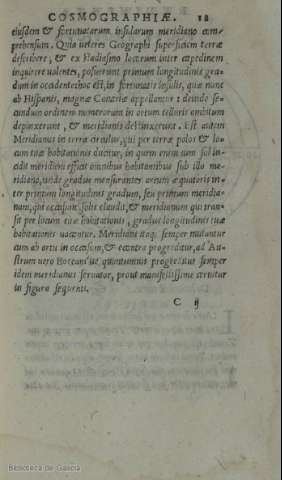 COSMOGRAPHIÆ. 18
eiusdem & fortunatarum insularum meridiano com-
prehensum. Quia ueteres Geographi superficiem terræ
describere, & ex Stadiasmo locorum inter capedinem
inquirere uolentes, posuerunt primum longitudinis gra-
dum in occidente: hoc est, in fortunatis insulis, quæ nunc
ab Hispanis, magnæ Canariæ appellantur: deinde se-
cundum ordinem numerorum in ortum telluris ambitum
depinxerunt, & meridianis distinxerunt. Est autem
Meridianus in terra circulus, qui per terræ polos & lo-
cum tuæ habitationis ducitur, in quem cum sol inci-
dit meridiem efficit omnibus habitantibus sub illo me-
ridiano, unde gradus mensurantes arcum æquatoris in-
ter primum longitudinis gradum, seu primum meridia-
num, qui occasum solis claudit, & meridianum qui tran-
sit per locum tuæ habitationis, gradus longitudinis tuæ
habitationis uocantur. Meridiani itaq; semper mutantur
cum ab ortu in occasum, & econtra progreditur, ad Au-
strum uero Boreamue quantumuis progrediatur semper
idem meridianus seruatur, prout manifestissime cernitur
in figura sequenti.
C ij
Biblioteca de Galicia